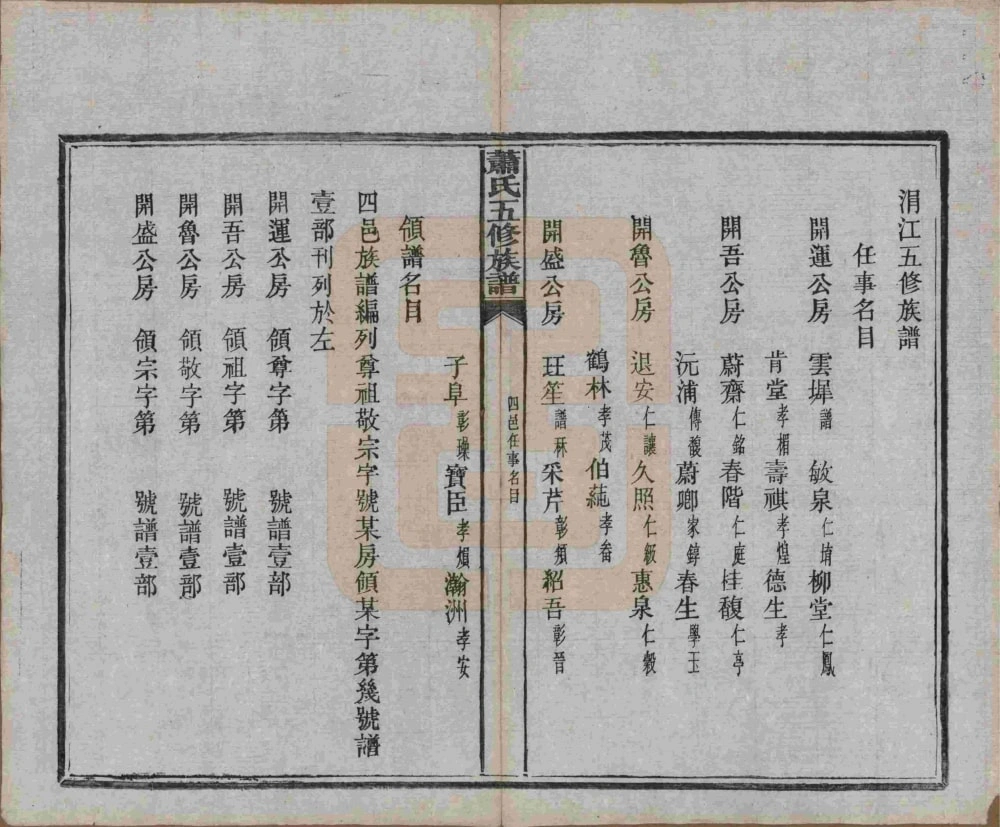 涓江五修族譜
任事名目
開運公房 雲墀譜 敏泉仁堉 柳堂仁鳳
肯堂孝楣 壽祺孝煌 德生孝
開吾公房 蔚齋仁銘 春階仁庭 桂馥仁亭
沅浦傳馥 蔚卿家錞 春生學玉
開魯公房 退安仁讓 久照仁級 惠泉仁毅
鶴林孝茂 伯蒓孝畬
開盛公房 玨笙譜秝 采芹彰頌 紹吾彰晉
蕭氏五修族譜
四邑任事名目
子阜彰璪 寶臣孝熉 瀚洲孝安
領譜名目
四邑族譜編列尊祖敬宗字號某房領某字第幾號譜
壹部刊列於左
開運公房 領尊字第 號譜壹部
開吾公房 領祖字第 號譜壹部
開魯公房 領敬字第 號譜壹部
開盛公房 領宗字第 號譜壹部